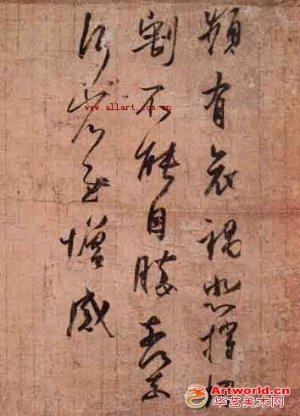 頻有哀禍悲摧
割不能自勝奈何
奈何省慰增感
www.allart.com.cn
Artworld.cn
华艺美术网